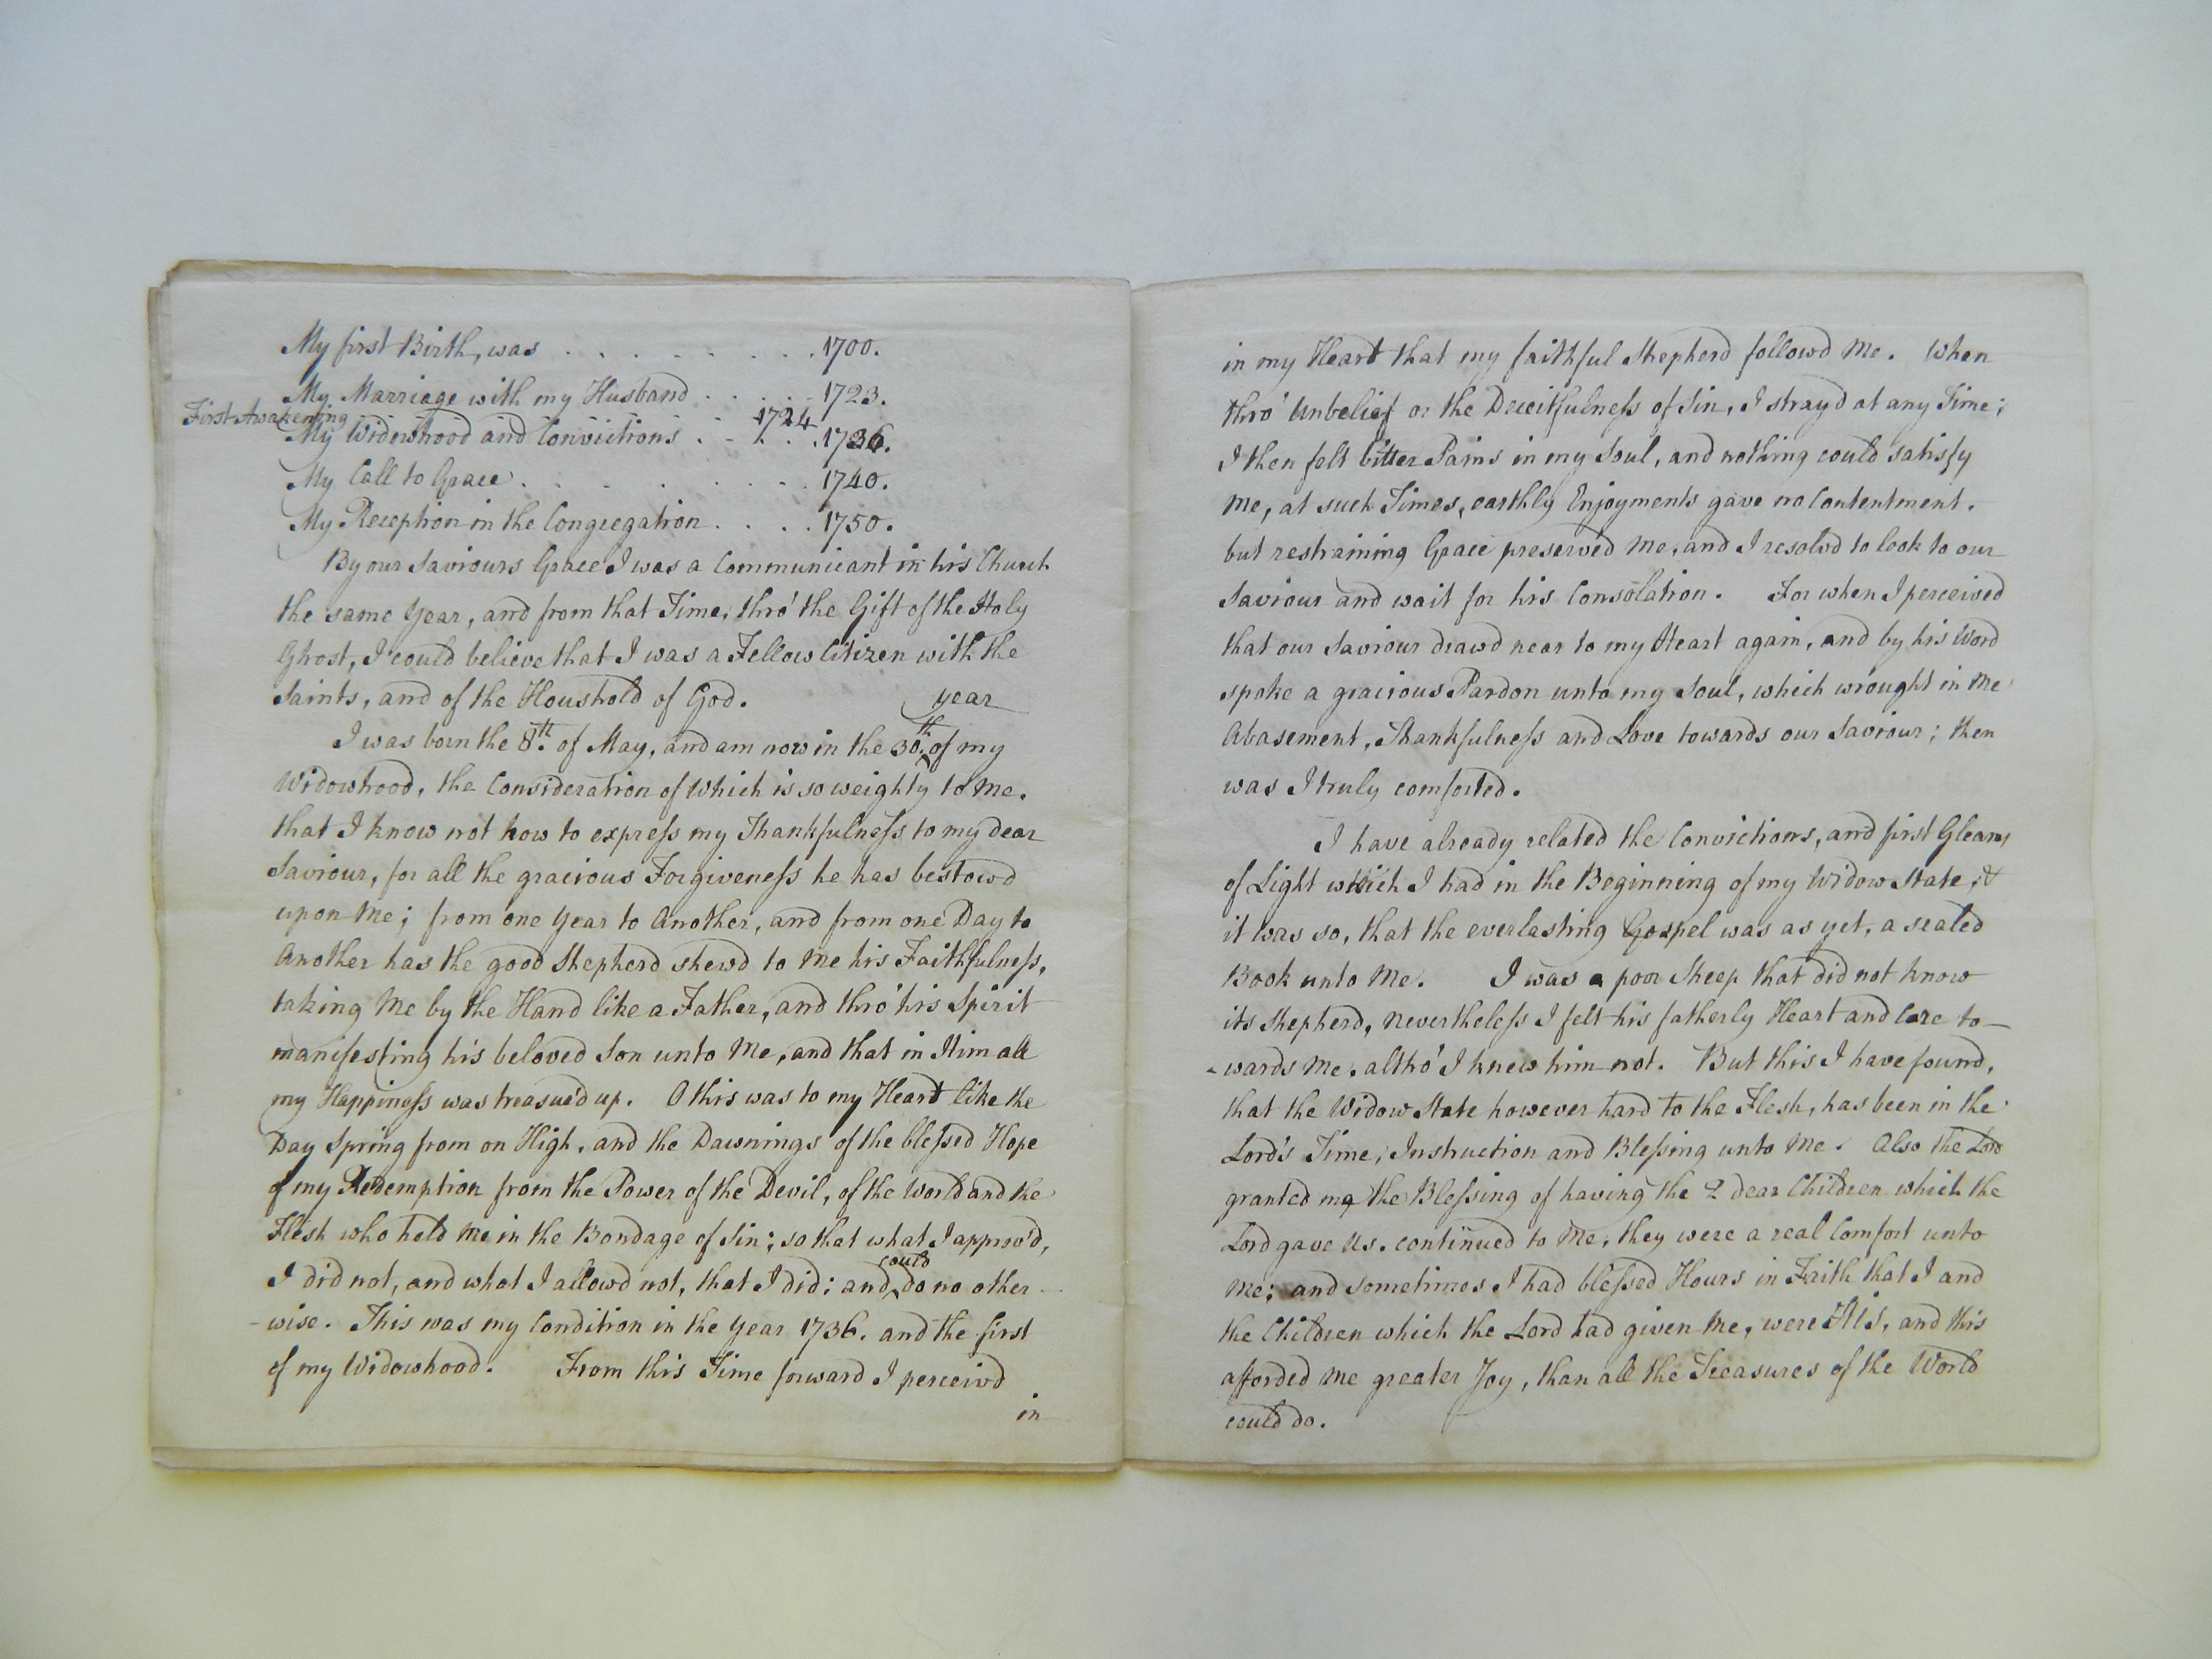 My first Birth, was . . . . . . . . 1700.
My Marriage with my Husband . . . . 1723.
First Awakening 1724
My Widowhood and Convictions . - . . . 1736.
My Call to Grace . . . . . . . . 1740.
My Reception in the Congregation . . . . 1750.
By our Saviours Grace I was a Communicant in his Church
the same Year, and from that Time, thro' the Gift of the Holy
Ghost, I could believe that I was a Fellow Citizen with the
Saints, and of the Houshold of God.
year
I was born the 8th. of May, and am now in the 30th. of my
Widowhood, the Consideration of Which is so weighty to Me,
that I know not how to express my Thankfulness to my dear
Saviour, for all the gracious Forgiveness he has bestowd
upon Me; from one Year to Another, and from one Day to
Another has the good Shepherd shewd to Me his Faithfulness,
taking Me by the Hand like a Father, and thro' his Spirit
manifesting his beloved Son unto Me, and that in Him all
my Happiness was treasue'd up. O this was to my Heart like the
Day Spring from on High, and the Dawnings of the blessed Hope
of my Redemption from the Power of the Devil, of the World and the
Flesh who held Me in the Bondage of Sin; so that what I approv'd,
could
I did not, and what I allowd not, that I did; and do no other-
-wise. This was my Condition in the Year 1736. and the first
of my Widowhood. From this Time forward I perceivd
in
in my Heart that my faithful Shepherd followd Me. When
thro' Unbelief or the Deceitfulness of Sin, I strayd at any Time;
I then felt bitter Pains in my Soul, and nothing could satisfy
Me, at such Times, earthly Enjoyments gave no Contentment.
but restraining Grace preserved Me, and I resolvd to look to our
Saviour and wait for his Consolation. For when I perceived
that our Saviour drawd near to my Heart again, and by his Word
spoke a gracious Pardon unto my Soul, which wrought in Me
Abasement, Thankfulness and Love towards our Saviour; then
was I truly comforted.
I have already related the Convictions, and first Gleams
of Light which I had in the Beginning of my Widow State, &
it was so, that the everlasting Gospel was as yet, a sealed
Book unto Me. I was a poor Sheep that did not know
its Shepherd, Nevertheless I felt his fatherly Heart and Care to-
-wards Me, altho' I knew him not. But this I have found,
that the Widow State however hard to the Flesh, has been in the
Lord's Time, Instruction and Blessing unto Me. Also the Lord
granted me the Blessing of having the 2 dear Children which the
Lord gave Us. continued to Me, they were a real Comfort unto
Me; and sometimes I had blessed Hours in Faith that I and
the Children which the Lord had given Me, were His, and this
afforded Me greater Joy, than all the Treasures of the World
could do.